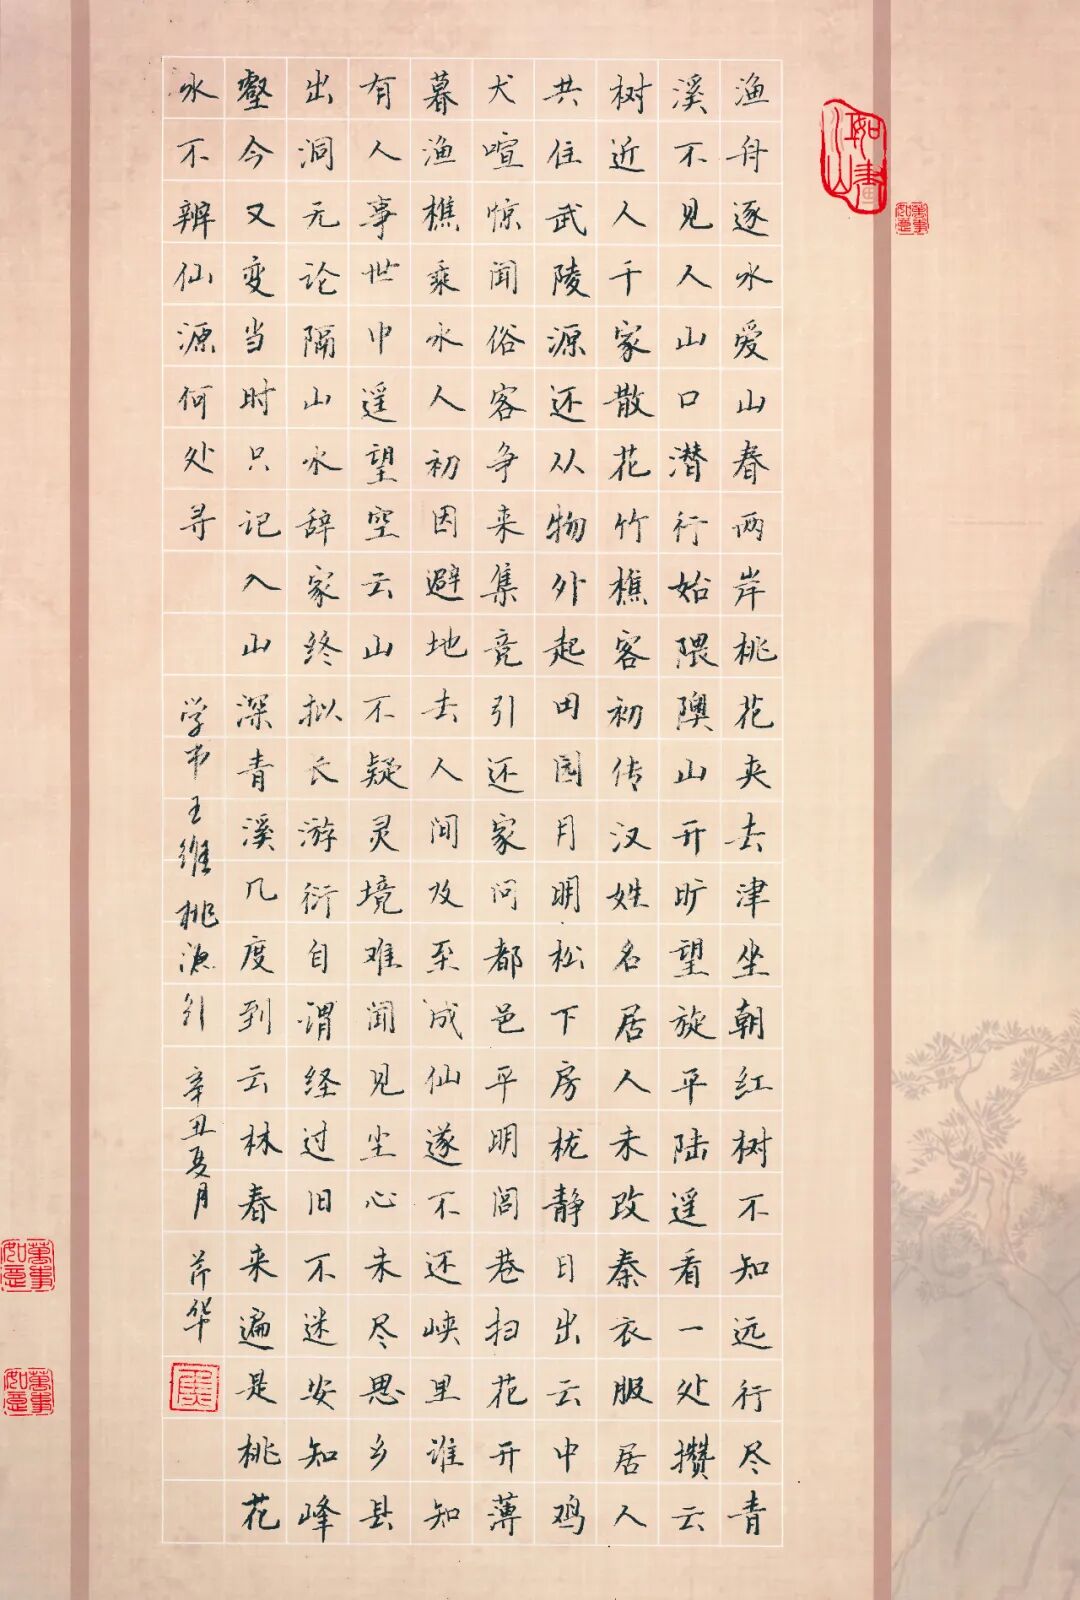 如畫江山
萬事如意
渔舟逐水爱山春两岸桃花夹去津坐朝红树不知远行尽青
溪不见人山口潜行始隈隩山开旷望旋平陆遥看一处攒云
树近人千家散花竹樵客初传汉姓名居人未改秦衣服居人
共住武陵源还从物外起田园月明松下房栊静日出云中鸡
犬喧惊闻俗客争来集竞引还家问都邑平明闾巷扫花开薄
暮渔樵乘水人初因避地去人间及至成仙遂不还峡里谁知
有人事世中遥望空云山不疑灵境难闻见尘心未尽思乡县
出洞无论隔山水辞家终拟长游衍自谓经过旧不迷安知峰
壑今又变当时只记入山深青溪几度到云林春来遍是桃花
水不辨仙源何处寻
学书王维桃源引 辛丑夏月 芹华
萬事如意
萬事如意